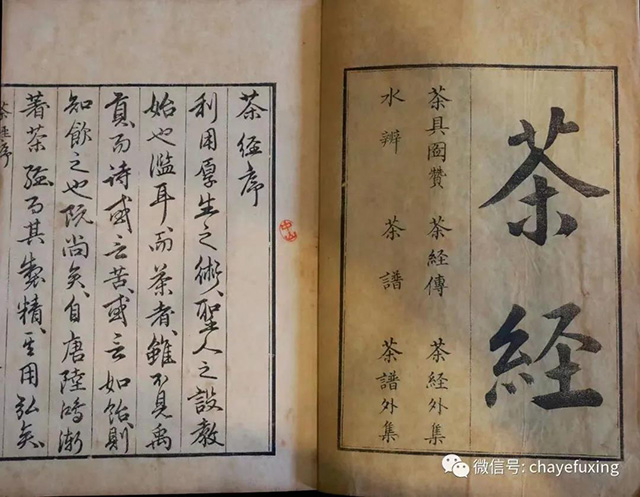 茶経
茶具圖贊 茶経傳 茶経外集
水辨 茶譜 茶譜外集
中山
茶経序
利用厚生之術、聖人之設教
始也濫耳、而茶者、雖不見禹
貢、而詩或言苦、或言如飴、則
知飲之也既尚矣、自唐陸鴻漸
著茶経而其製精、其用弘矣
茶経序
微信号: chayefuxing